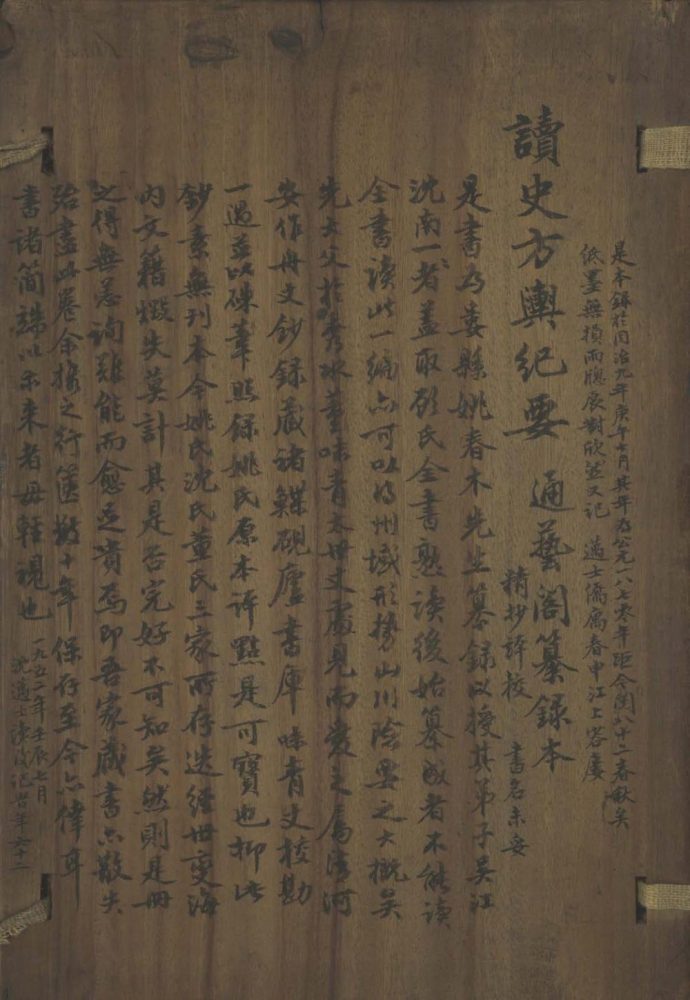 是本錄於同治九年庚午七月其年為公元一八七零年距今閱八十二春秋矣
紙墨無損雨牕展對欣然又記 邁士僑寓春申江上客廬
讀史方輿紀要 通藝閣纂錄本
精抄詳校 書名未妥
是書為婁縣姚春木先生纂錄以授其弟子吳江
沈南一者蓋取顧氏全書熟讀後始纂成者不能讀
全書讀此一編亦可以得州域形勢山川險要之大概吳
先大父於秀水董味青太世丈處見而愛之屬清河
安作舟丈鈔錄藏諸鰈硯廬書庫味青丈校勘
一過並以硃筆照錄姚氏原本評點是可寶也抑此
鈔素無刊本今姚氏沈氏董氏三家所存迭經世變海
內文籍燬失莫計其是否完好不可知矣然則是冊
之得無恙詢難能而愈足貴焉即吾家藏書亦散失
殆盡此卷余攜之行篋數十年保存至今亦倖耳
書諸簡端以示來者毋輕視也
一九五二年壬辰七月
沈邁士謹識時年六十二